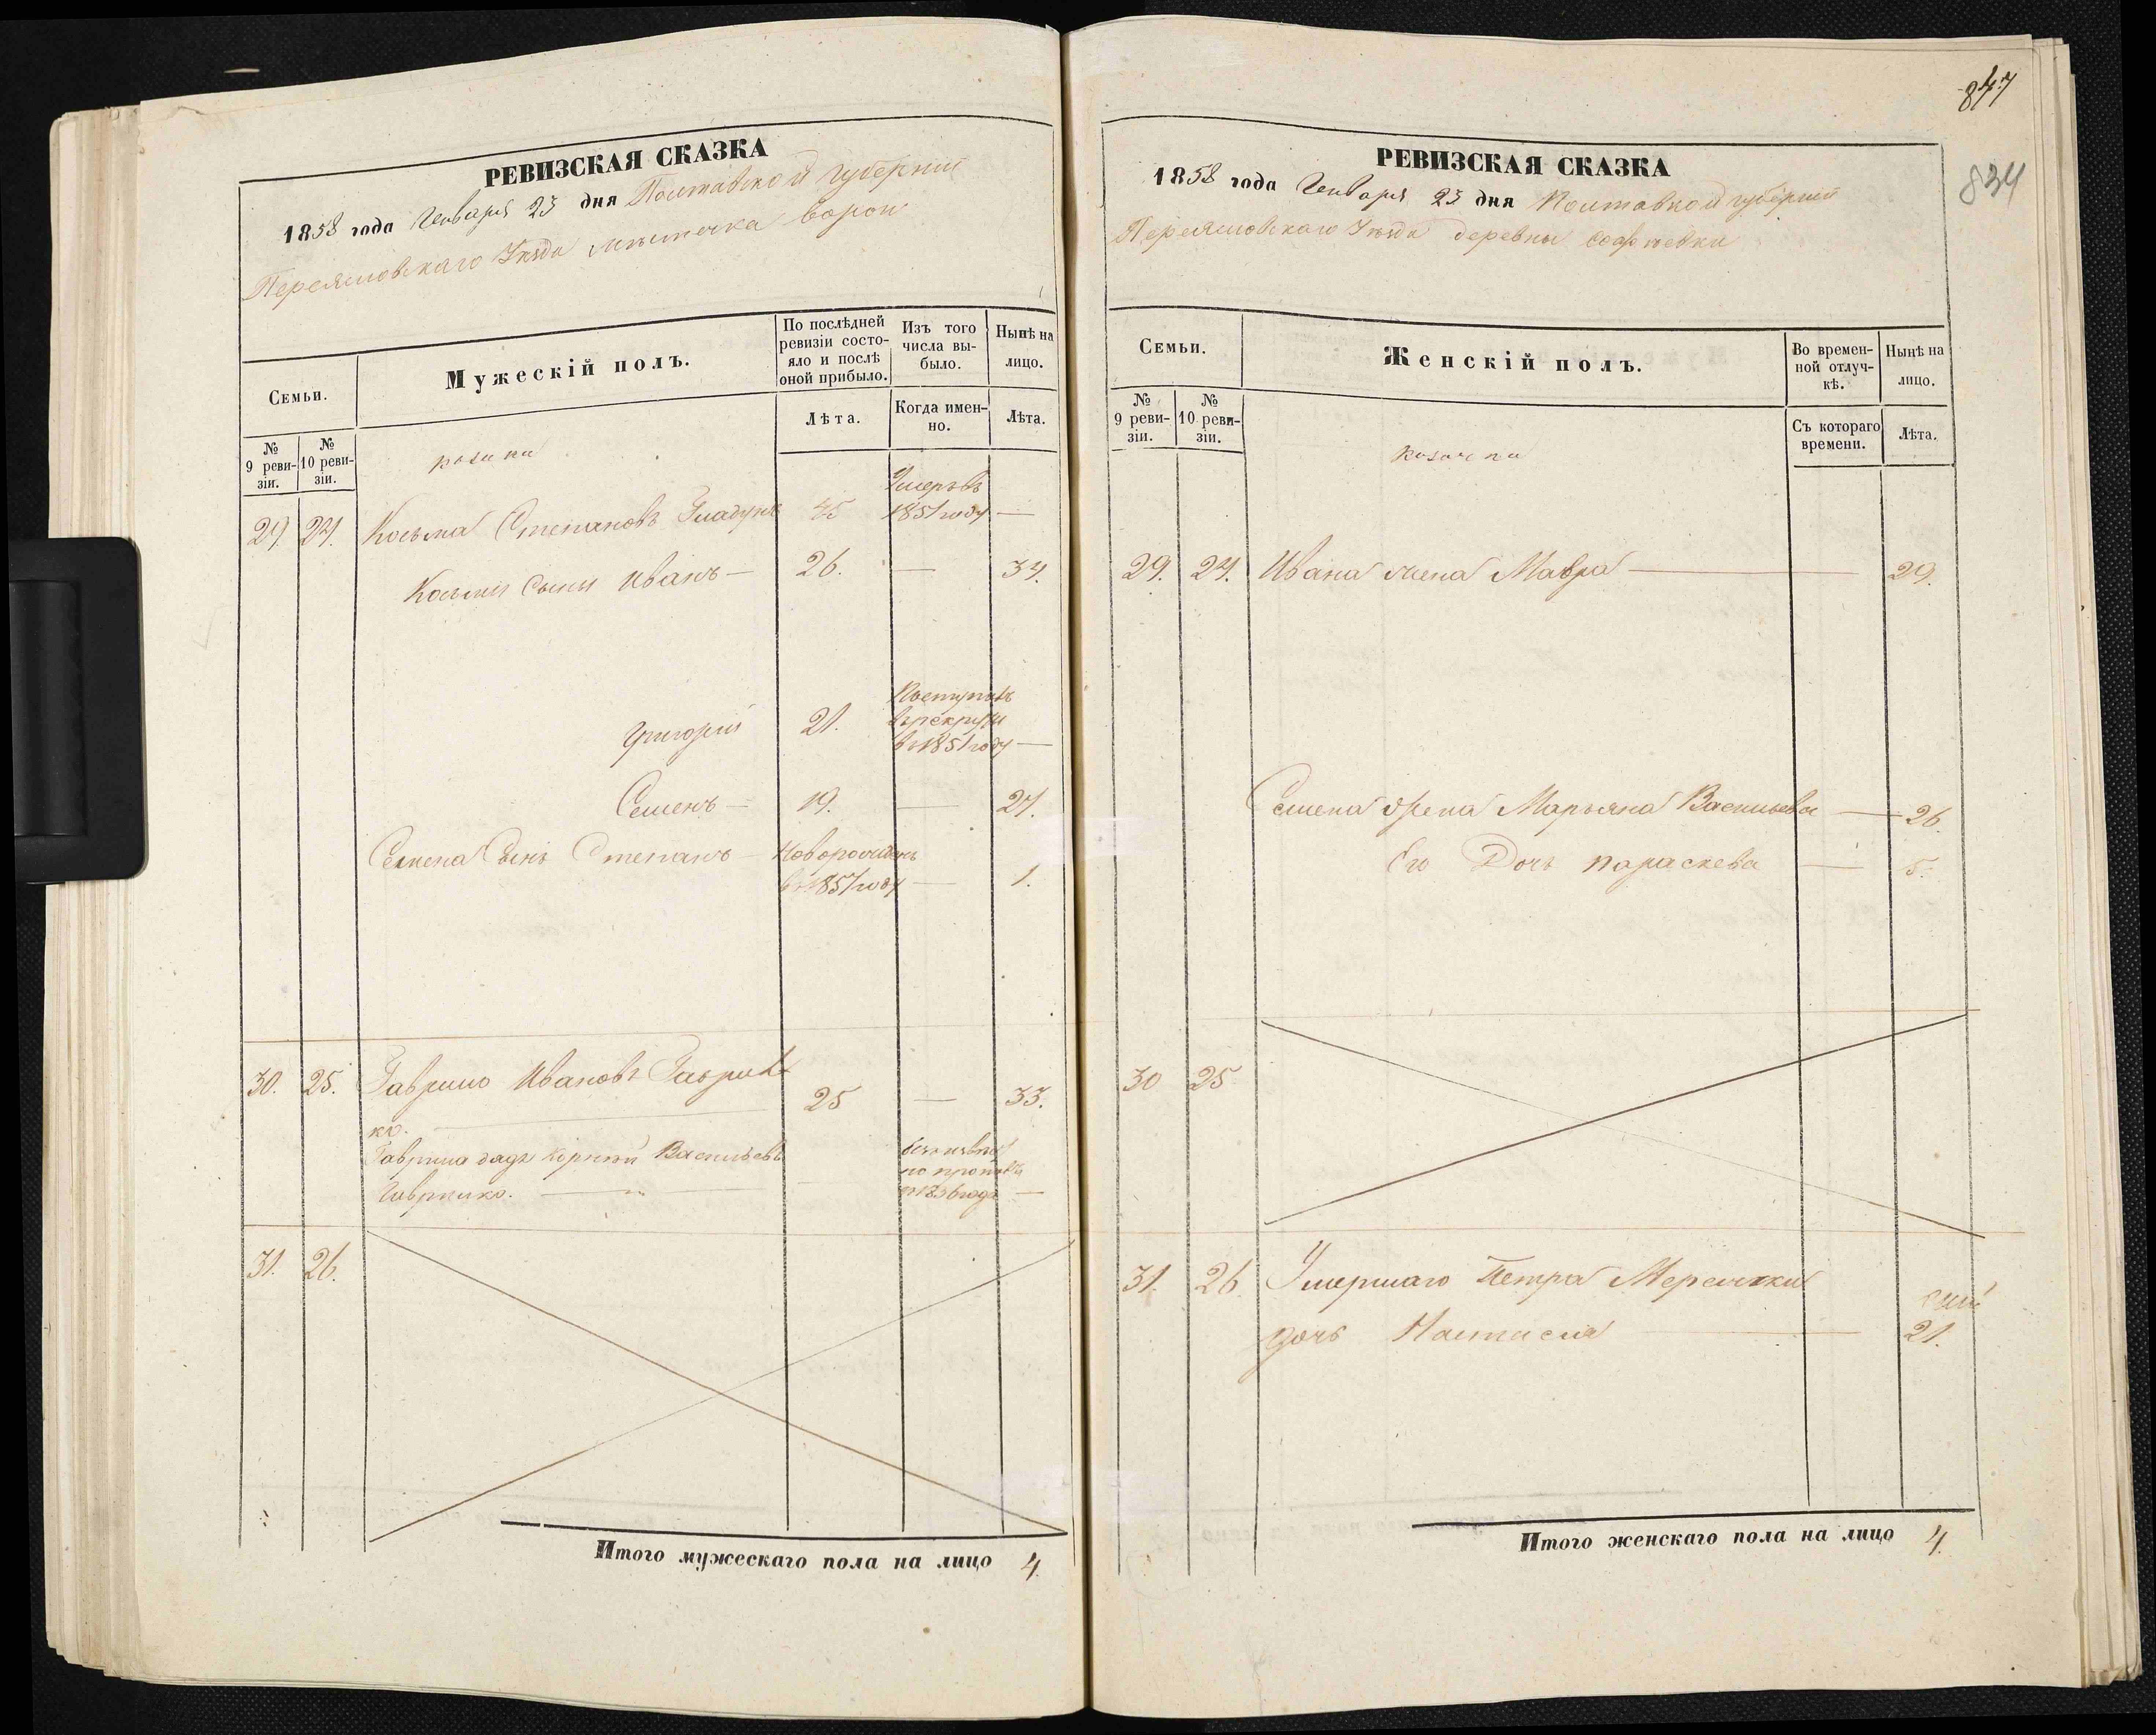 РЕВИЗСКАЯ СКАЗКА
1858 года Генваря 23 дня Полтавской губерніи
Переяславскаго Уезда мѣстечка
Семьи.
Мужескій полъ.
По послѣдней ревизіи состояло и послѣ оной прибыло.
Изъ того числа выбыло.
Нынѣ на лицо.
№ 9 ревизіи.
№ 10 ревизіи.
Лѣта.
Когда именно.
Лѣта.
козаки
29. 24. Козьма Степановъ Гладунъ 45 Умеръ въ 1851 году —
Козьми Сыны Иванъ — 26. — 34.
Григорій 21. Поступилъ въ рекруты въ 1851 году —
Семенъ — 19. — 27.
Семена Сынъ Степанъ — Новорожденъ
въ 1857 году — 1.
30. 25. Гаврило Ивановъ Гаврил
ко. 25 — 33.
Гаврила дядя Корнѣй Васильевъ
Гаврилко. —
31. 26.
Итого мужескаго пола на лицо 4.
847
834
РЕВИЗСКАЯ СКАЗКА
1858 года Генваря 23 дня Полтавской губерніи
Переяславскаго Уезда деревни Софіевки
Семьи.
Женскій полъ.
Во временной отлучкѣ.
Нынѣ на лицо.
№ 9 ревизіи.
№ 10 ревизіи.
Съ котораго времени.
Лѣта.
козачки
29. 24. Ивана жена Мавра — 29.
Семена жена Марьяна Васильева — 26.
Его Дочь параскева — 5.
30 25
31. 26. Умершаго Петра
дочь Настасія — 21.
Итого женскаго пола на лицо 4.